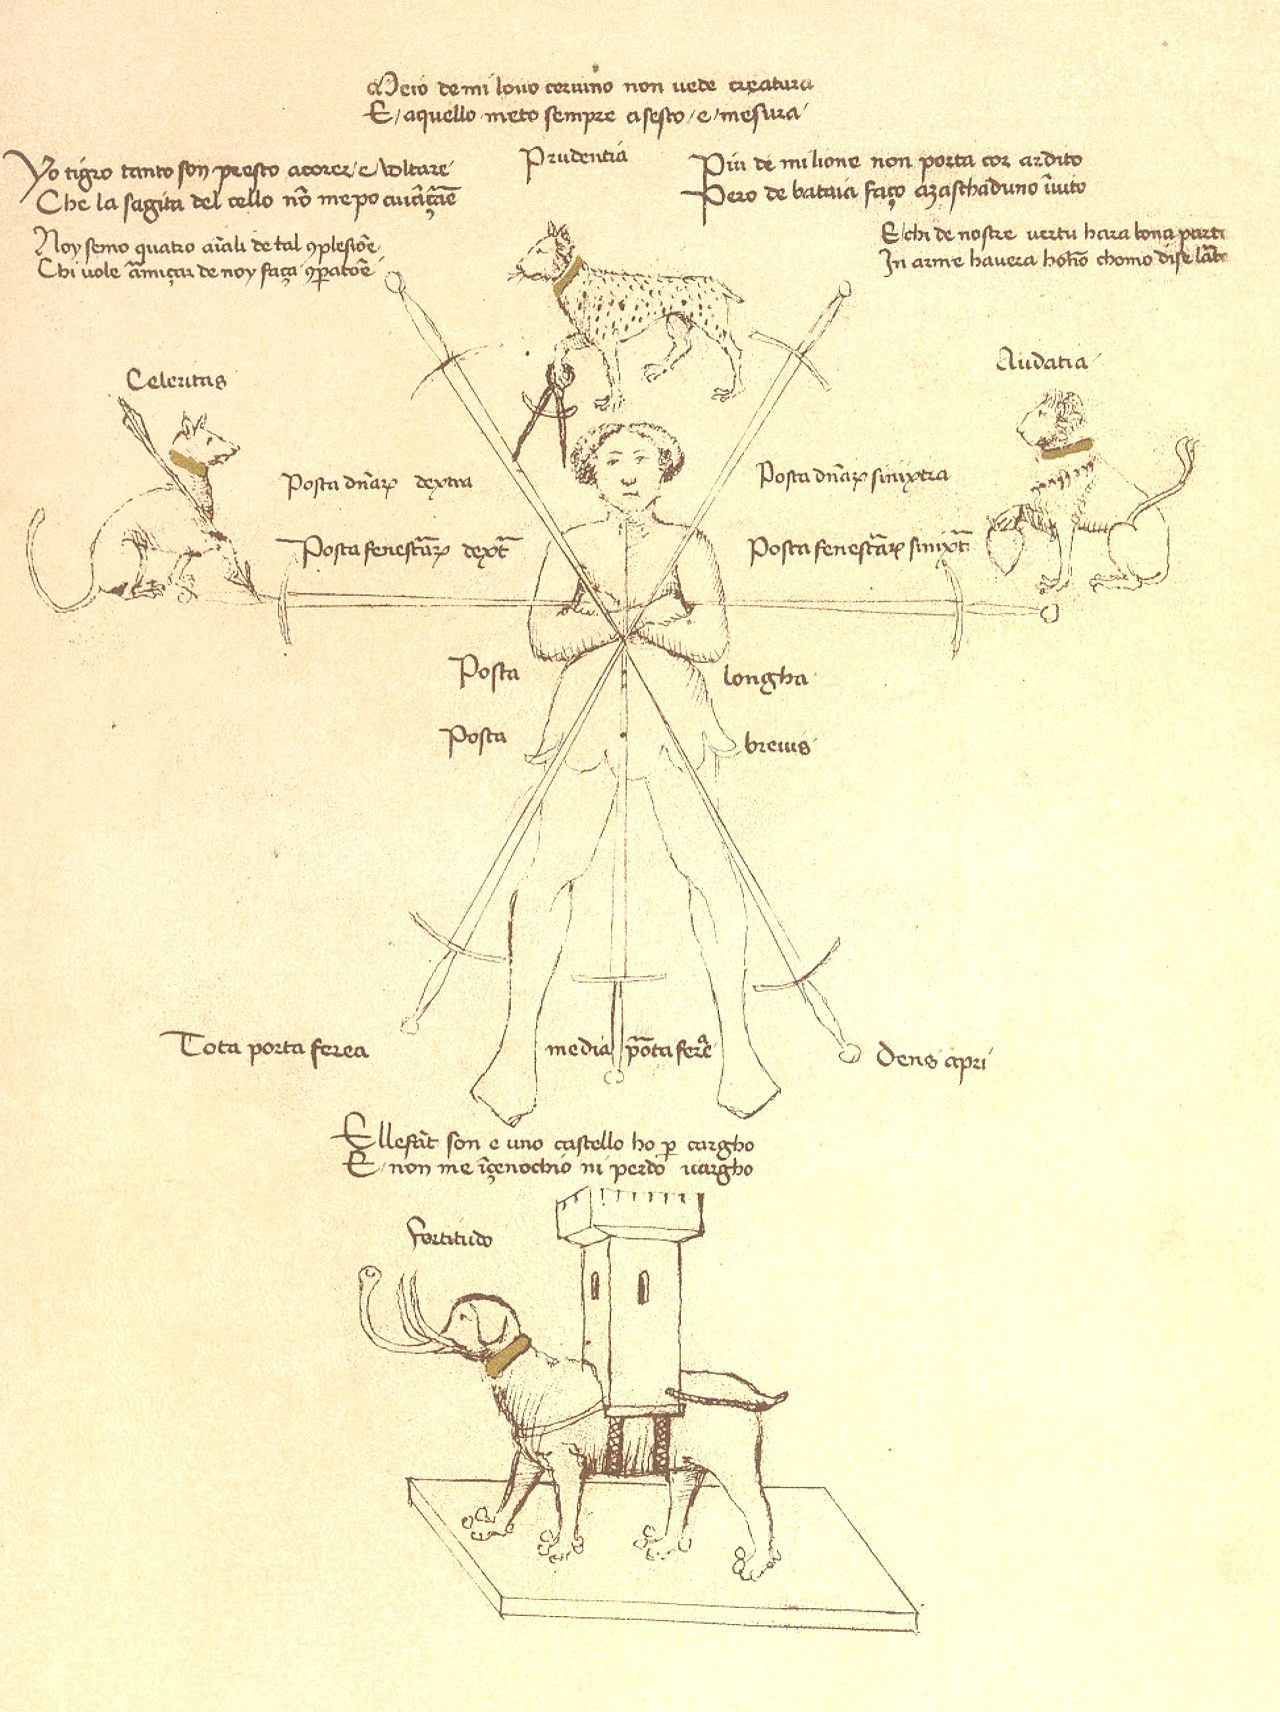 Meio de mi lovo cervino non vede creatura
E aquello meto sempre a sesto e mesura
Prudentia
Yo tigro tanto son presto a corer e voltare
Che la sagita del cello nō me po
Piu de mi lione non porta cor ardito
Pero de bataia faço a zaschaduno ī̄vito
Noy semo quatro aīali de tal ꝯplesiōe
Chi vole āmiçar de noy faça ꝯꝑatōē
E chi de nostre vertu hara bona parti
In arme havera honō chomo dise larte
Celeritas
Audatia
Posta dn̄aꝝ dextra
Posta dn̄aꝝ sinixtra
Posta fenest̄aꝝ dext̄
Posta fenest̄aꝝ sinixt̄
Posta longha
Posta brevis
Tota porta ferea
media p̄ota ferea
Dens apri
Ellefāt son e uno castello ho ꝑ cargho
E non me īçenochio ni perdo vargho
fortitudo